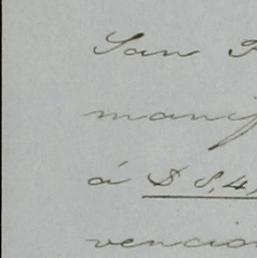 San F
manif
á $ 8,4
vencio